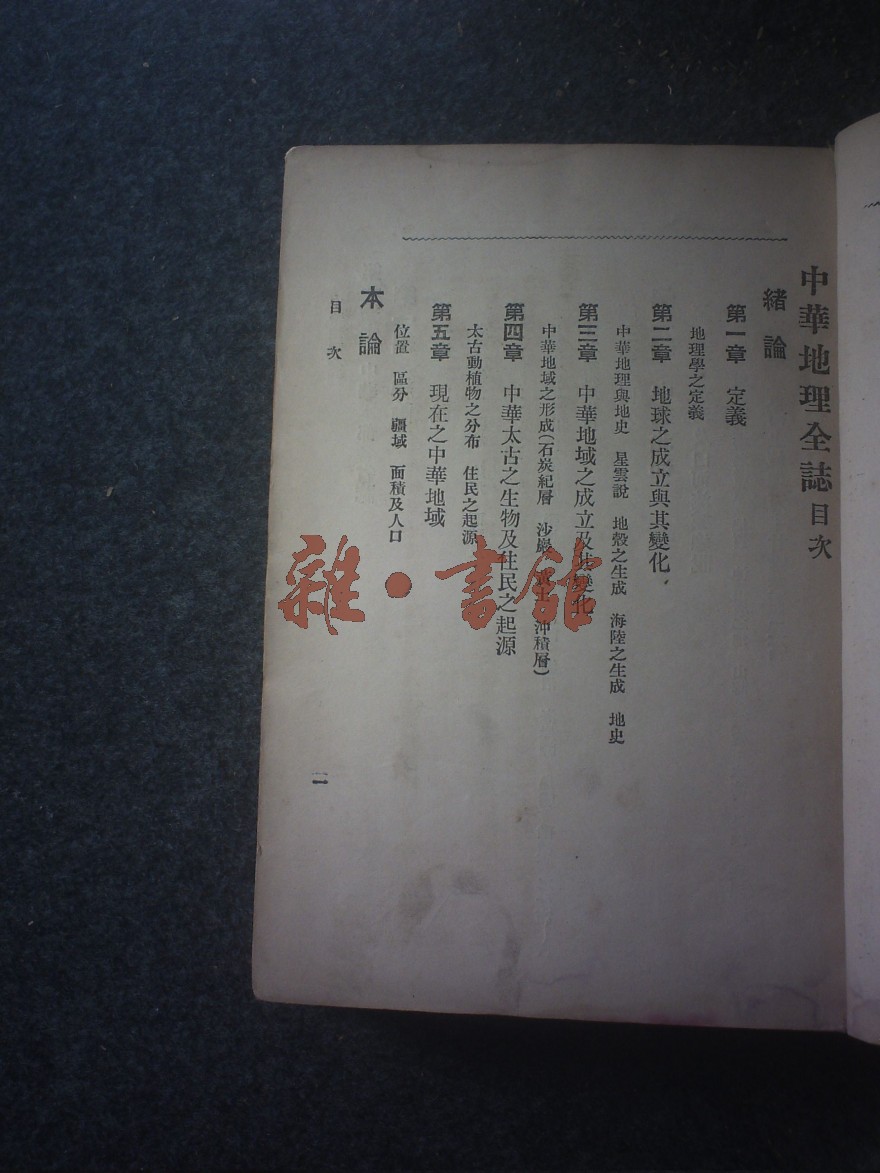 中華地理全誌目次
緒論
第一章 定義
地理學之定義
第二章 地球之成立與其變化
中華地理與地史 星雲說 地殼之生成 海陸之生成 地史
第三章 中華地域之成立及其變化
中華地域之形成(石炭紀層 沙巖 黃土 沖積層)
第四章 中華太古之生物及住民之起源
太古動植物之分布 住民之起源
第五章 現在之中華地域
位置 區分 疆域 面積及人口
本論
目次
雜·書館